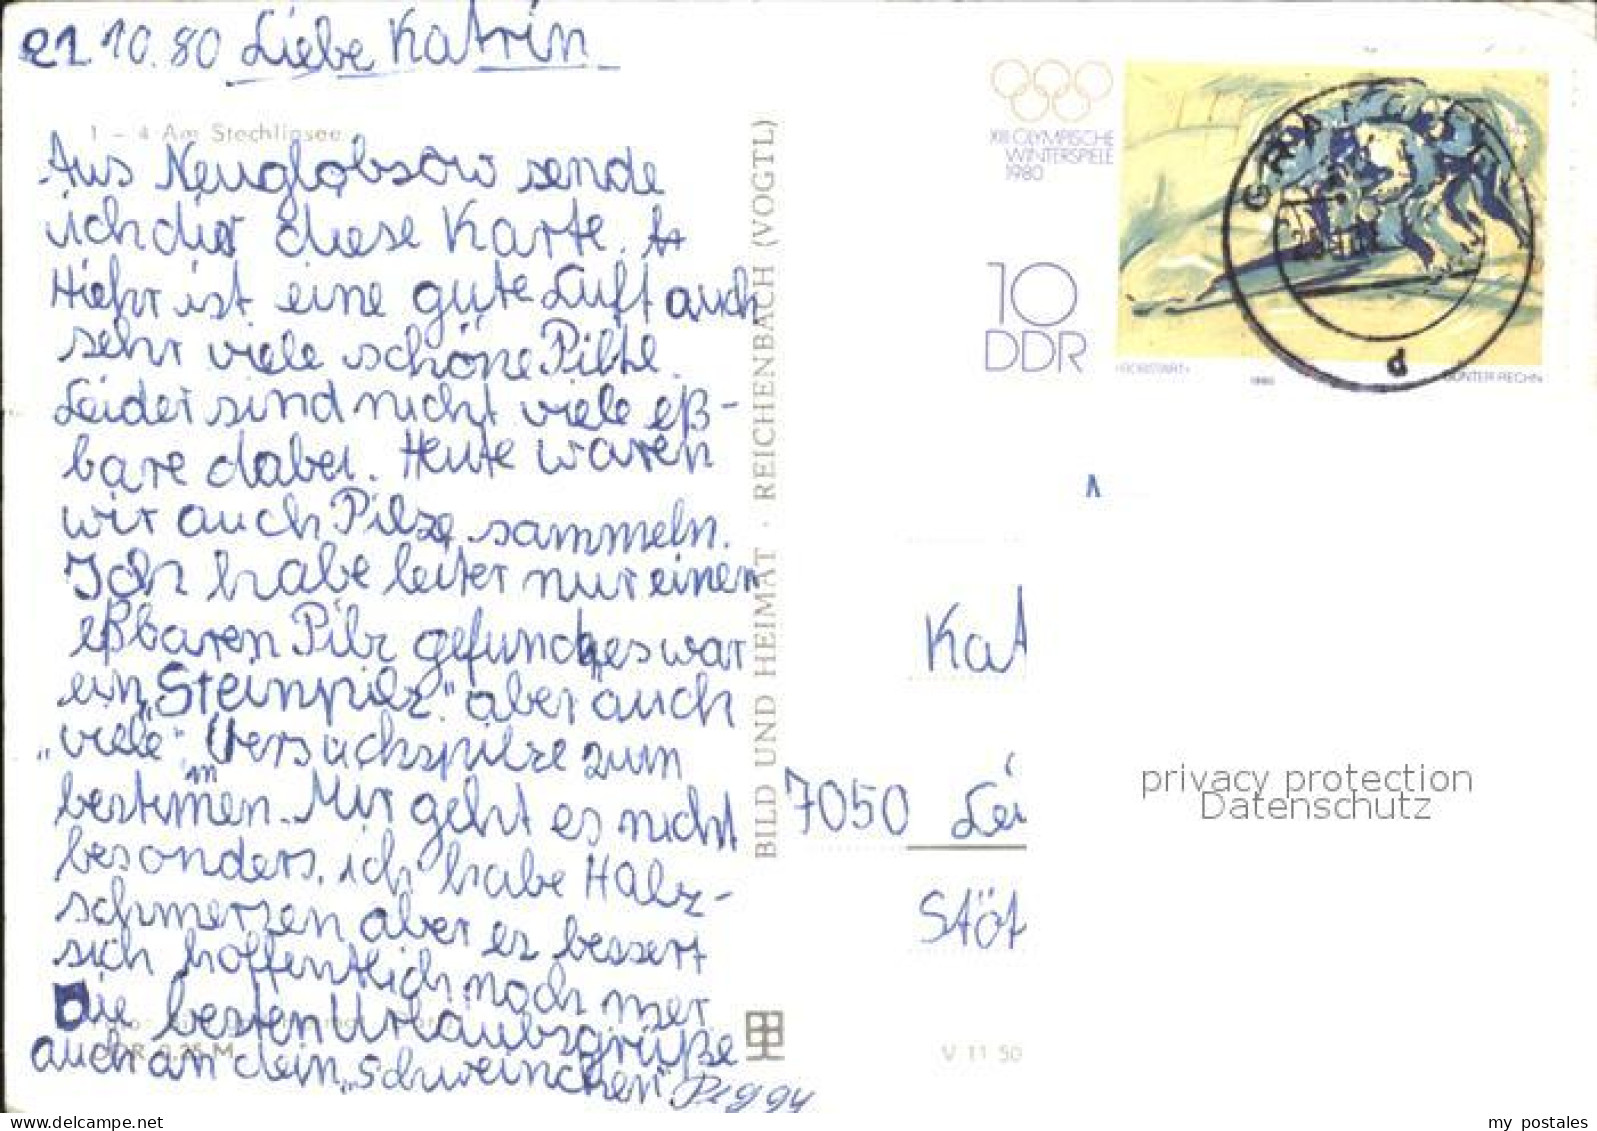 21.10.80 Liebe Katrin
1 – 4 Am Stechlinsee
Aus Neuglobsow sende
ich dir diese Karte.
Hiehr ist eine gute Luft auch
sehr viele schöne Pilze.
Leider sind nicht viele eß-
bare dabei. Heute waren
wir auch Pilze sammeln.
Ich habe leiter nur einen
eßbaren Pilz gefunden es war
ein „Steinpilz“ aber auch
„viele“ Versuchspilze zum
bestimmen. Mir geht es nicht
besonders, ich habe Halz-
schmerzen aber es bessert
sich hoffentlich noch mer
Die besten Urlaubsgrüße
auch an dein „Schweinchen“ Peggy
BILD UND HEIMAT · REICHENBACH (VOGTL)
XIII OLYMPISCHE
WINTERSPIELE
1980
10
DDR
1980
GÜNTER RECHN
d
Kat
7050 Lei
Stöt
V 11 50
privacy protection
Datenschutz
my postales